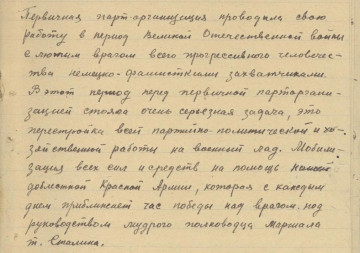 Первичная парт-организация проводила свою
работу в период Великой Отечественной войны
с лютым врагом всего прогрессивного человече-
тва немецко-фашисткими захватчиками.
В этот период перед первичной парторгани-
зацией стояла очень серьезная задача, это
перестройка всей партийно-политической и хо-
зяйственной работы на военный лад. Мобили-
зация всех сил и средств на помощь нашей
доблестной Красной Армии, которая с каждым
днем приближает час победы над врагом, под
руководством мудрого полководца Маршала
т. Сталина.